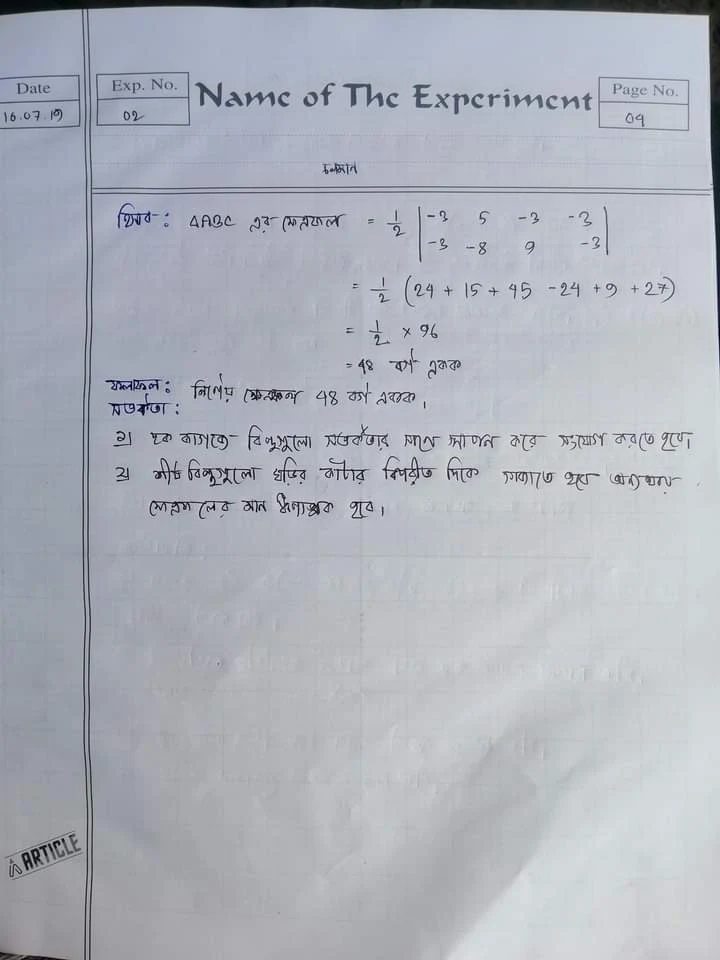 Date
16.07.19
Exp. No.
02
Name of The Experiment
Page No.
09
চলমান
হিসাব : ΔABC এর ক্ষেত্রফল = 1/2 | -3 5 -3 -3 |
| -3 -8 9 -3 |
= 1/2 (24 + 15 + 45 - 24 + 9 + 27)
= 1/2 × 96
= 48 বর্গ একক
ফলাফল : নির্ণেয় ক্ষেত্রফল 48 বর্গ একক।
সতর্কতা :
১) ছক কাগজে বিন্দুগুলো সতর্কতার সাথে স্থাপন করে সংযোগ করতে হবে।
২) শীর্ষ বিন্দুগুলো ঘড়ির কাটার বিপরীত দিকে হবে অন্যথায়
ক্ষেত্রফলের মান ঋণাত্মক হবে।
ARTICLE